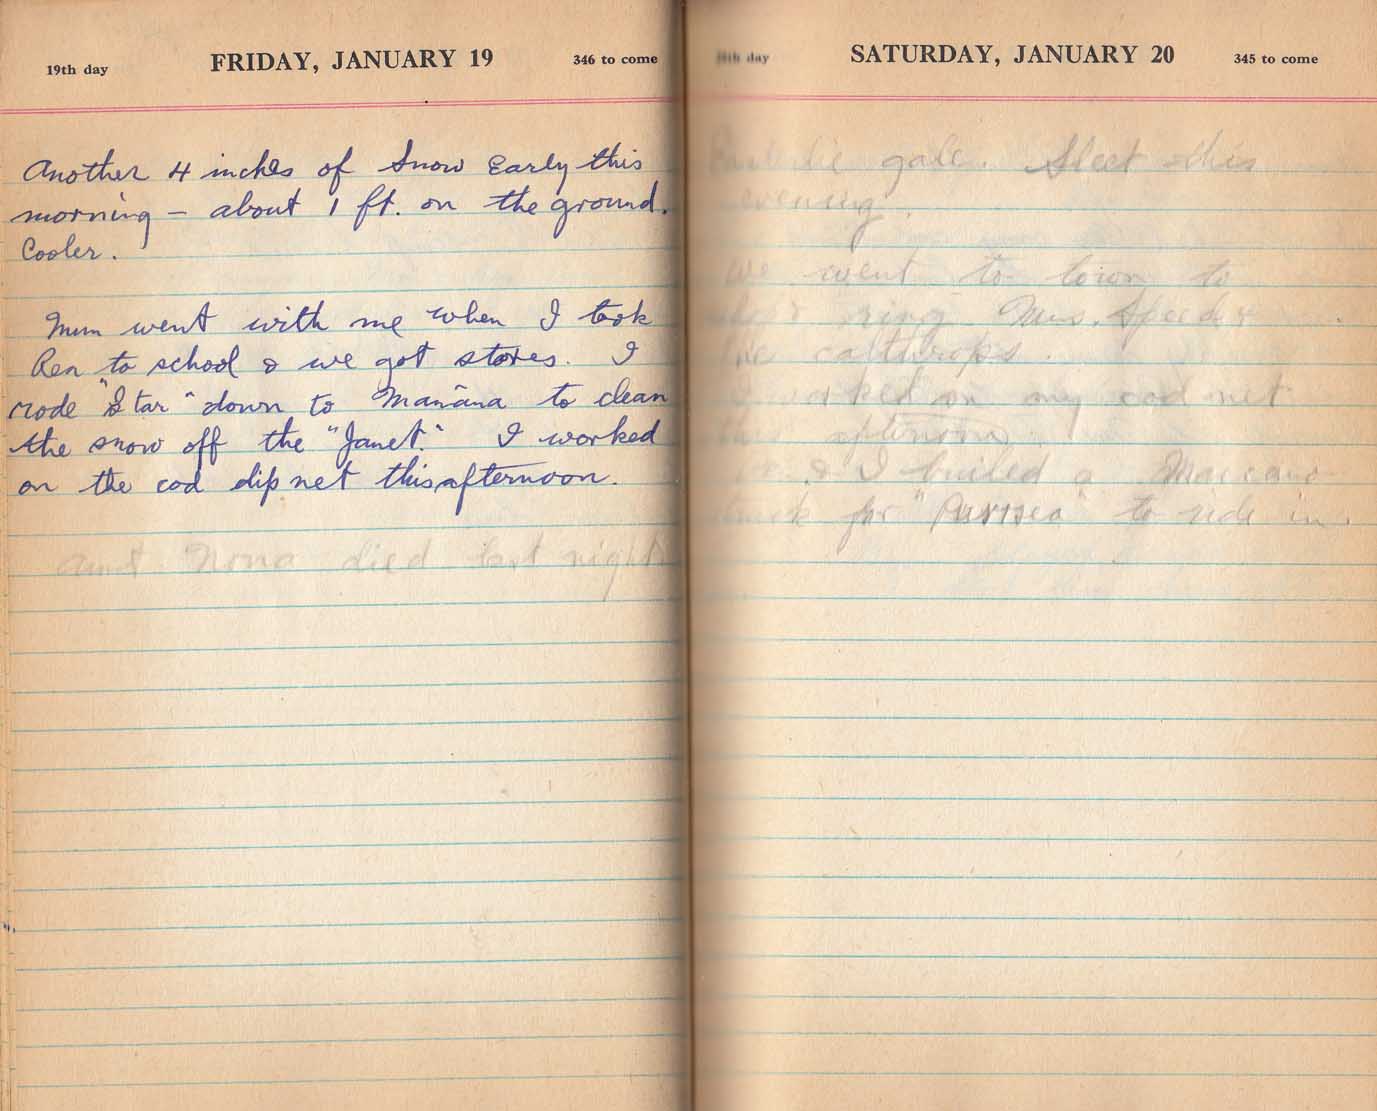 19th day FRIDAY, JANUARY 19 346 to come
Another 4 inches of Snow Early this
morning - about 1 ft. on the ground.
Cooler.
Mum went with me when I took
Ren to school & we got stores. I
rode "Star" down to Mañana to clean
the snow off the "Janet." I worked
on the cod dip net this afternoon.
Aunt Nona died last night
day SATURDAY, JANUARY 20 345 to come
gale. Sleet this
evening.
We went to town to
ring Mrs.
worked on my cod net
this afternoon.
& I builed a Meccano
truck for to ride in.